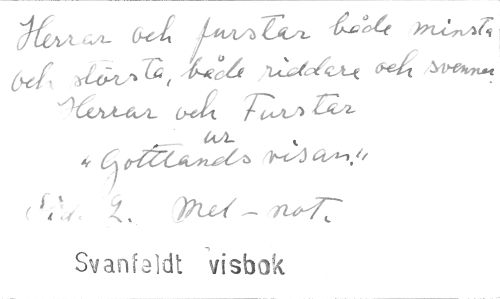 Herrar och furstar både minsta
och största, både riddare och svenner.
Herrar och Furstar
ur
"Gottlands visan."
Sid. 2. Mel-not.
Svanfeldt visbok